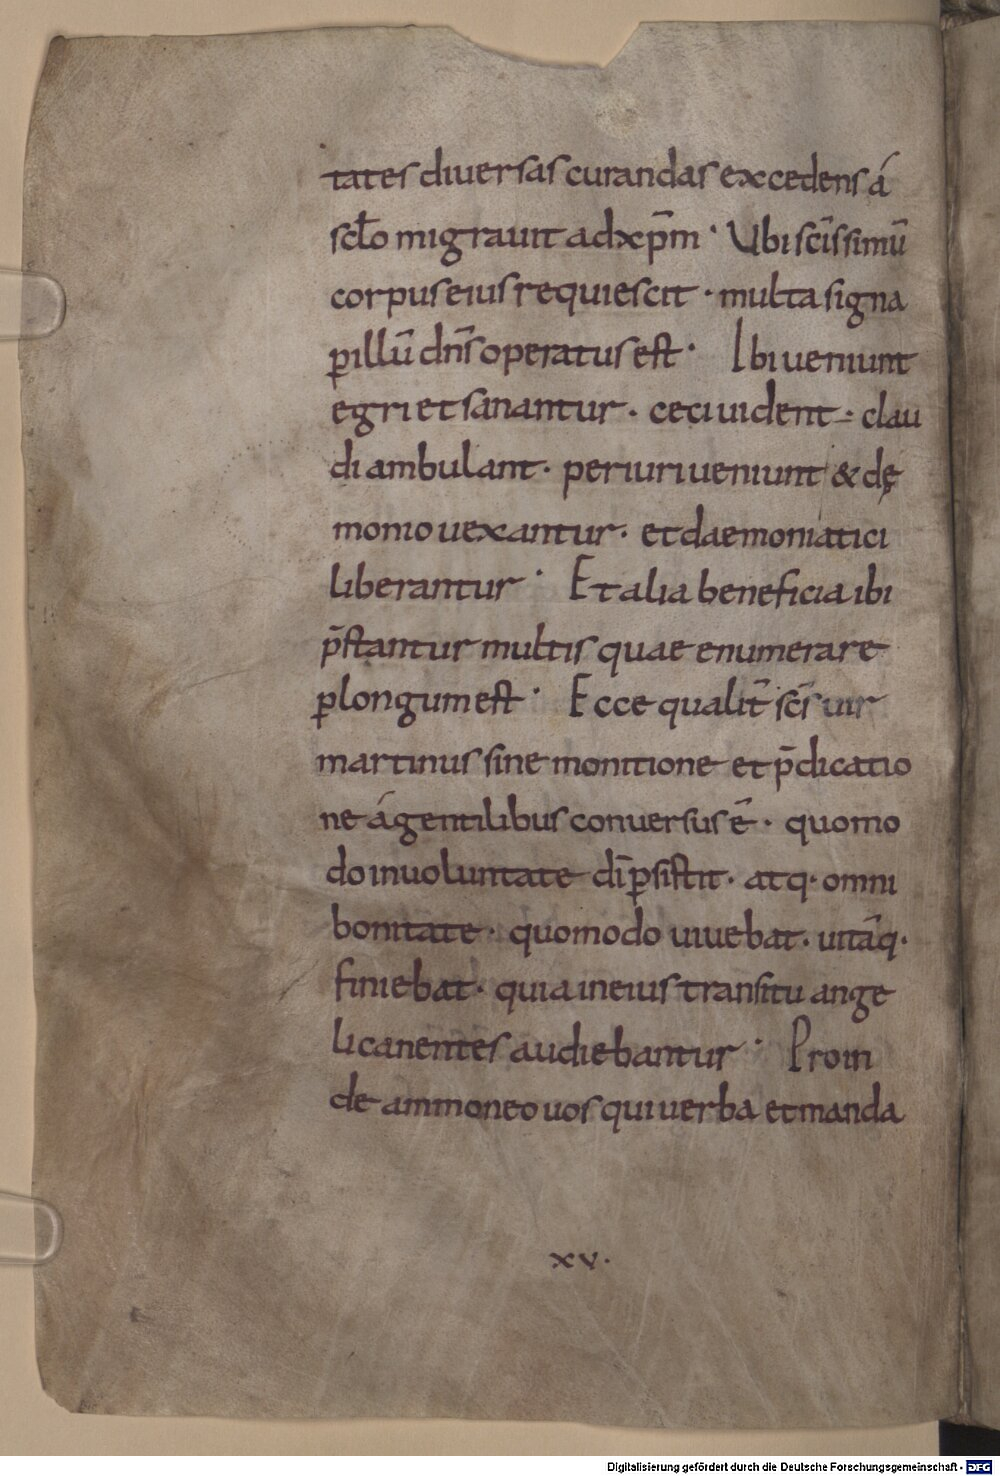 tates diuersas curandas excedens á
scło migrauit adxp̄m · Ubi scīssimū
corpus eius requiescit · multa signa
ꝑillū dn̄s operatus est · Ibi ueniunt
egri et sanantur · ceci uident · clau
di ambulant · periuri ueniunt & dę
monio uexantur · et daemoniatici
liberantur · Et alia beneficia ibi
p̄stantur multis quae enumerare
ꝑlongum est · Ecce qualit̄ scs̄ uir
martinus sine monitione et p̄dicatio
ne ágentilibus conuersus ē · quomo
do inuoluntate dī ꝑsistit · atq· omni
bonitate · quomodo uiuebat · uitāq·
finiebat · quia in eius transitu ange
li canentes audiebantur · Proin
de ammoneo uos qui uerba et manda
xv·
Digitalisierung gefördert durch die Deutsche Forschungsgemeinschaft - DFG